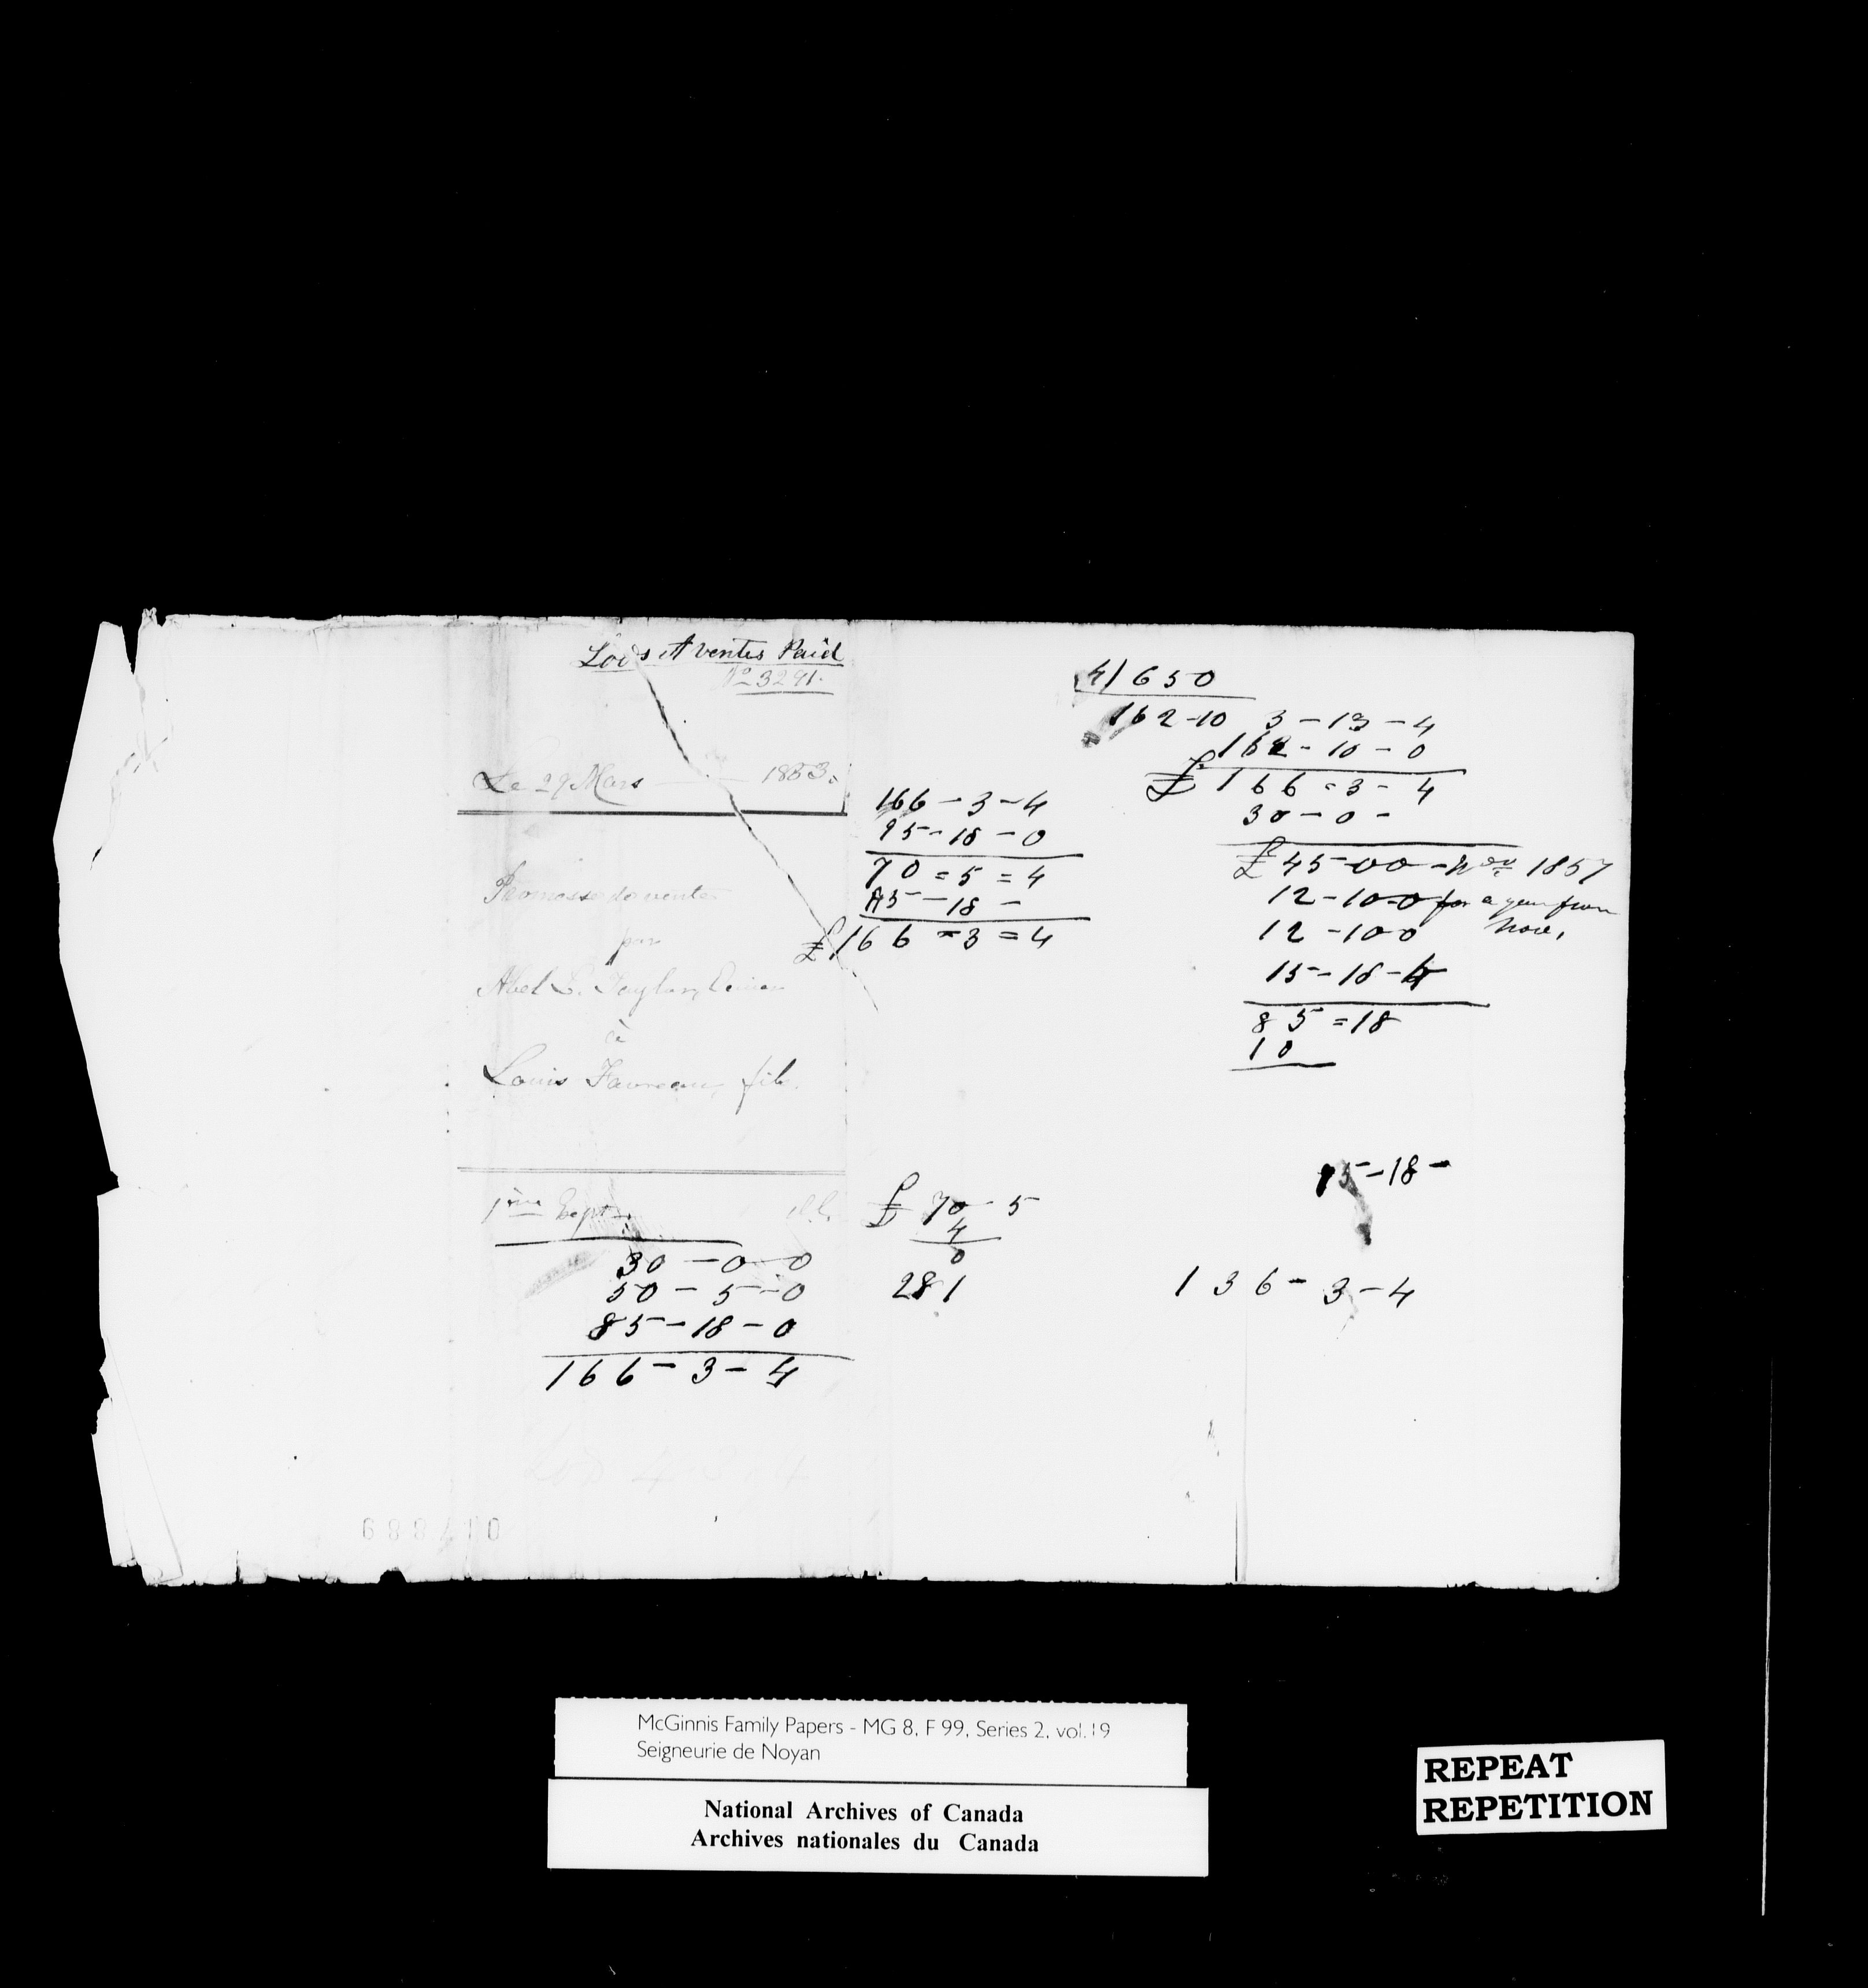 Lods et ventes Paid
No 3291.
Le 29 Mars 1853.
Promesse de vente
par
Abel L. Taylor,
à
Louis Favreau, fils.
1ère Expt.
30 - 0 - 0
50 - 5 - 0
85 - 18 - 0
166 - 3 - 4
166 - 3 - 4
95 - 18 - 0
70 = 5 = 4
95 - 18 -
£166 = 3 = 4
£ 70 - 5
4
0
281
4/650
162-10
3 - 13 - 4
162 - 10 - 0
£ 166 = 3 - 4
30 - 0 -
£ 45-00 - Nov 1857
12 - 10-0 for a year from
Nov.
12 - 100
15 - 18 -
85 = 18
10
15 - 18 -
136 - 3 - 4
McGinnis Family Papers - MG 8, F 99, Series 2, vol.19
Seigneurie de Noyan
National Archives of Canada
Archives nationales du Canada
REPEAT
REPETITION